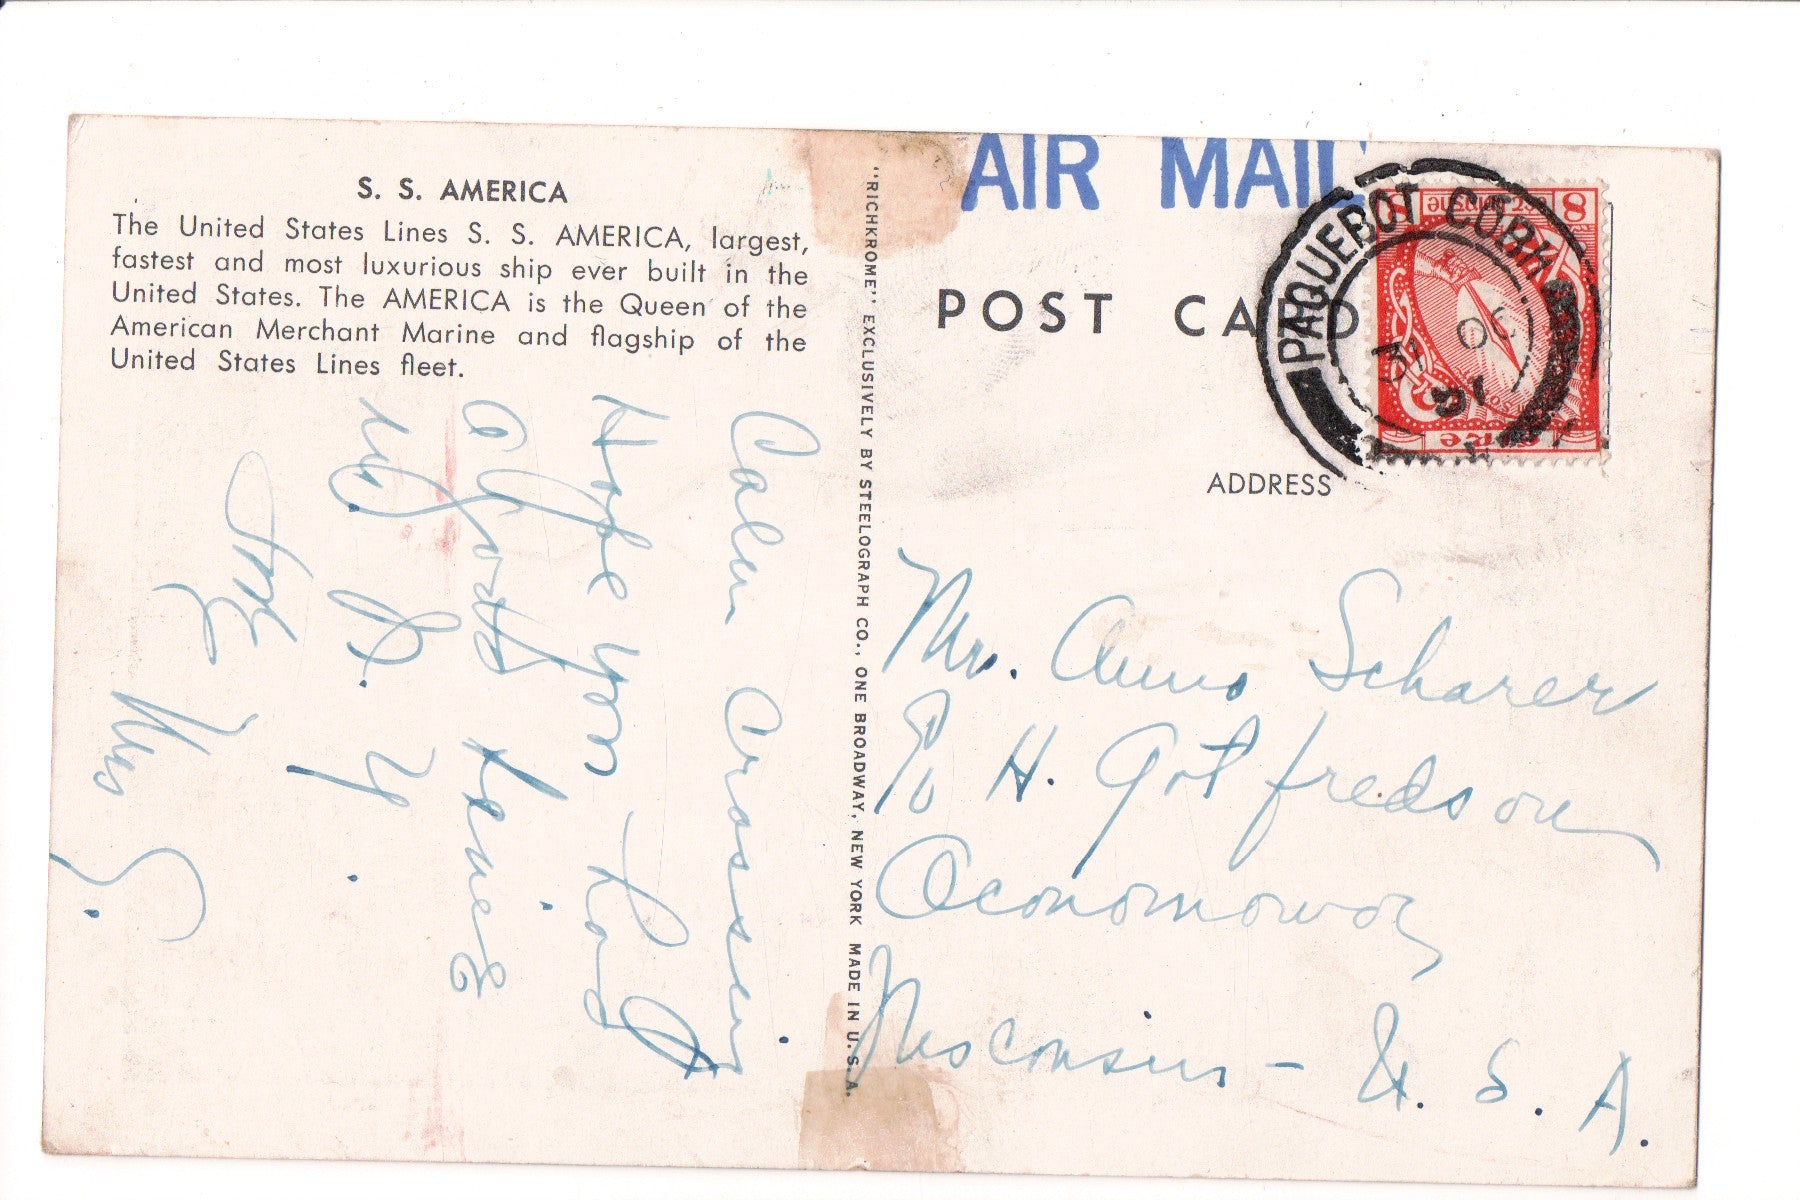 S. S. AMERICA
The United States Lines S. S. AMERICA, largest,
fastest and most luxurious ship ever built in the
United States. The AMERICA is the Queen of the
American Merchant Marine and flagship of the
United States Lines fleet.
Calm Crossing.
Hope you had
a good time
in N. Y.
Mrs S.
"RICHKROME" EXCLUSIVELY BY STEELOGRAPH CO., ONE BROADWAY, NEW YORK MADE IN U. S. A.
AIR MAIL
POST CARD
PAQUEBOT COBH
31 OC
51
8
ADDRESS
Mr. Anno Scharer
c/o H. Gotfredson
Oconomowoc
Wisconsin - U. S. A.